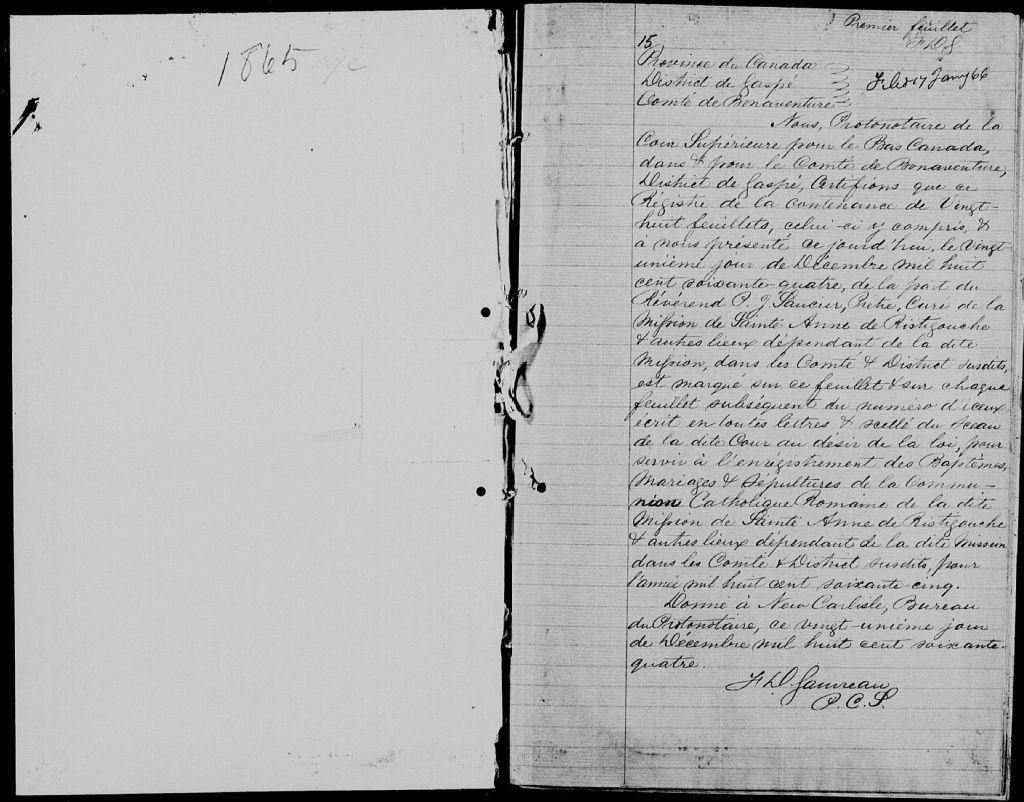 1865
Premier feuillet
FDG
15
Province du Canada
District de Gaspé
Comté de Bonaventure
Filed 17 Jany 66
Nous, Protonotaire de la
Cour Supérieure pour le Bas Canada,
dans & pour le Comté de Bonaventure,
District de Gaspé, Certifions que ce
Régistre de la contenance de Vingt-
huit feuillets, celui-ci y compris, &
à nous présenté ce jourd'hui, le vingt
unième jour de Décembre mil huit
cent soixante-quatre, de la part du
Révérend P. J. Saucier, Prêtre, Curé de la
Mission de Sainte Anne de Ristigouche
& autres lieux dépendant de la dite
Mission, dans les Comté & District susdits,
est marqué sur ce feuillet & sur chaque
feuillet subséquent du numéro d'iceux
écrit en toutes lettres & scellé du sceau
de la dite Cour au désir de la loi, pour
servir à l'enrégistrement des Baptêmes,
Mariages & Sépultures de la Commu-
nion Catholique Romaine de la dite
Mission de Sainte Anne de Ristigouche
& autres lieux dépendant de la dite Mission
dans les Comté & District susdits, pour
l'année mil huit cent soixante cinq.
Donné à New Carlisle, Bureau
du Protonotaire, ce vingt-unième jour
de Décembre mil huit cent soixante-
quatre.
F D Gauvreau
P. C. S.